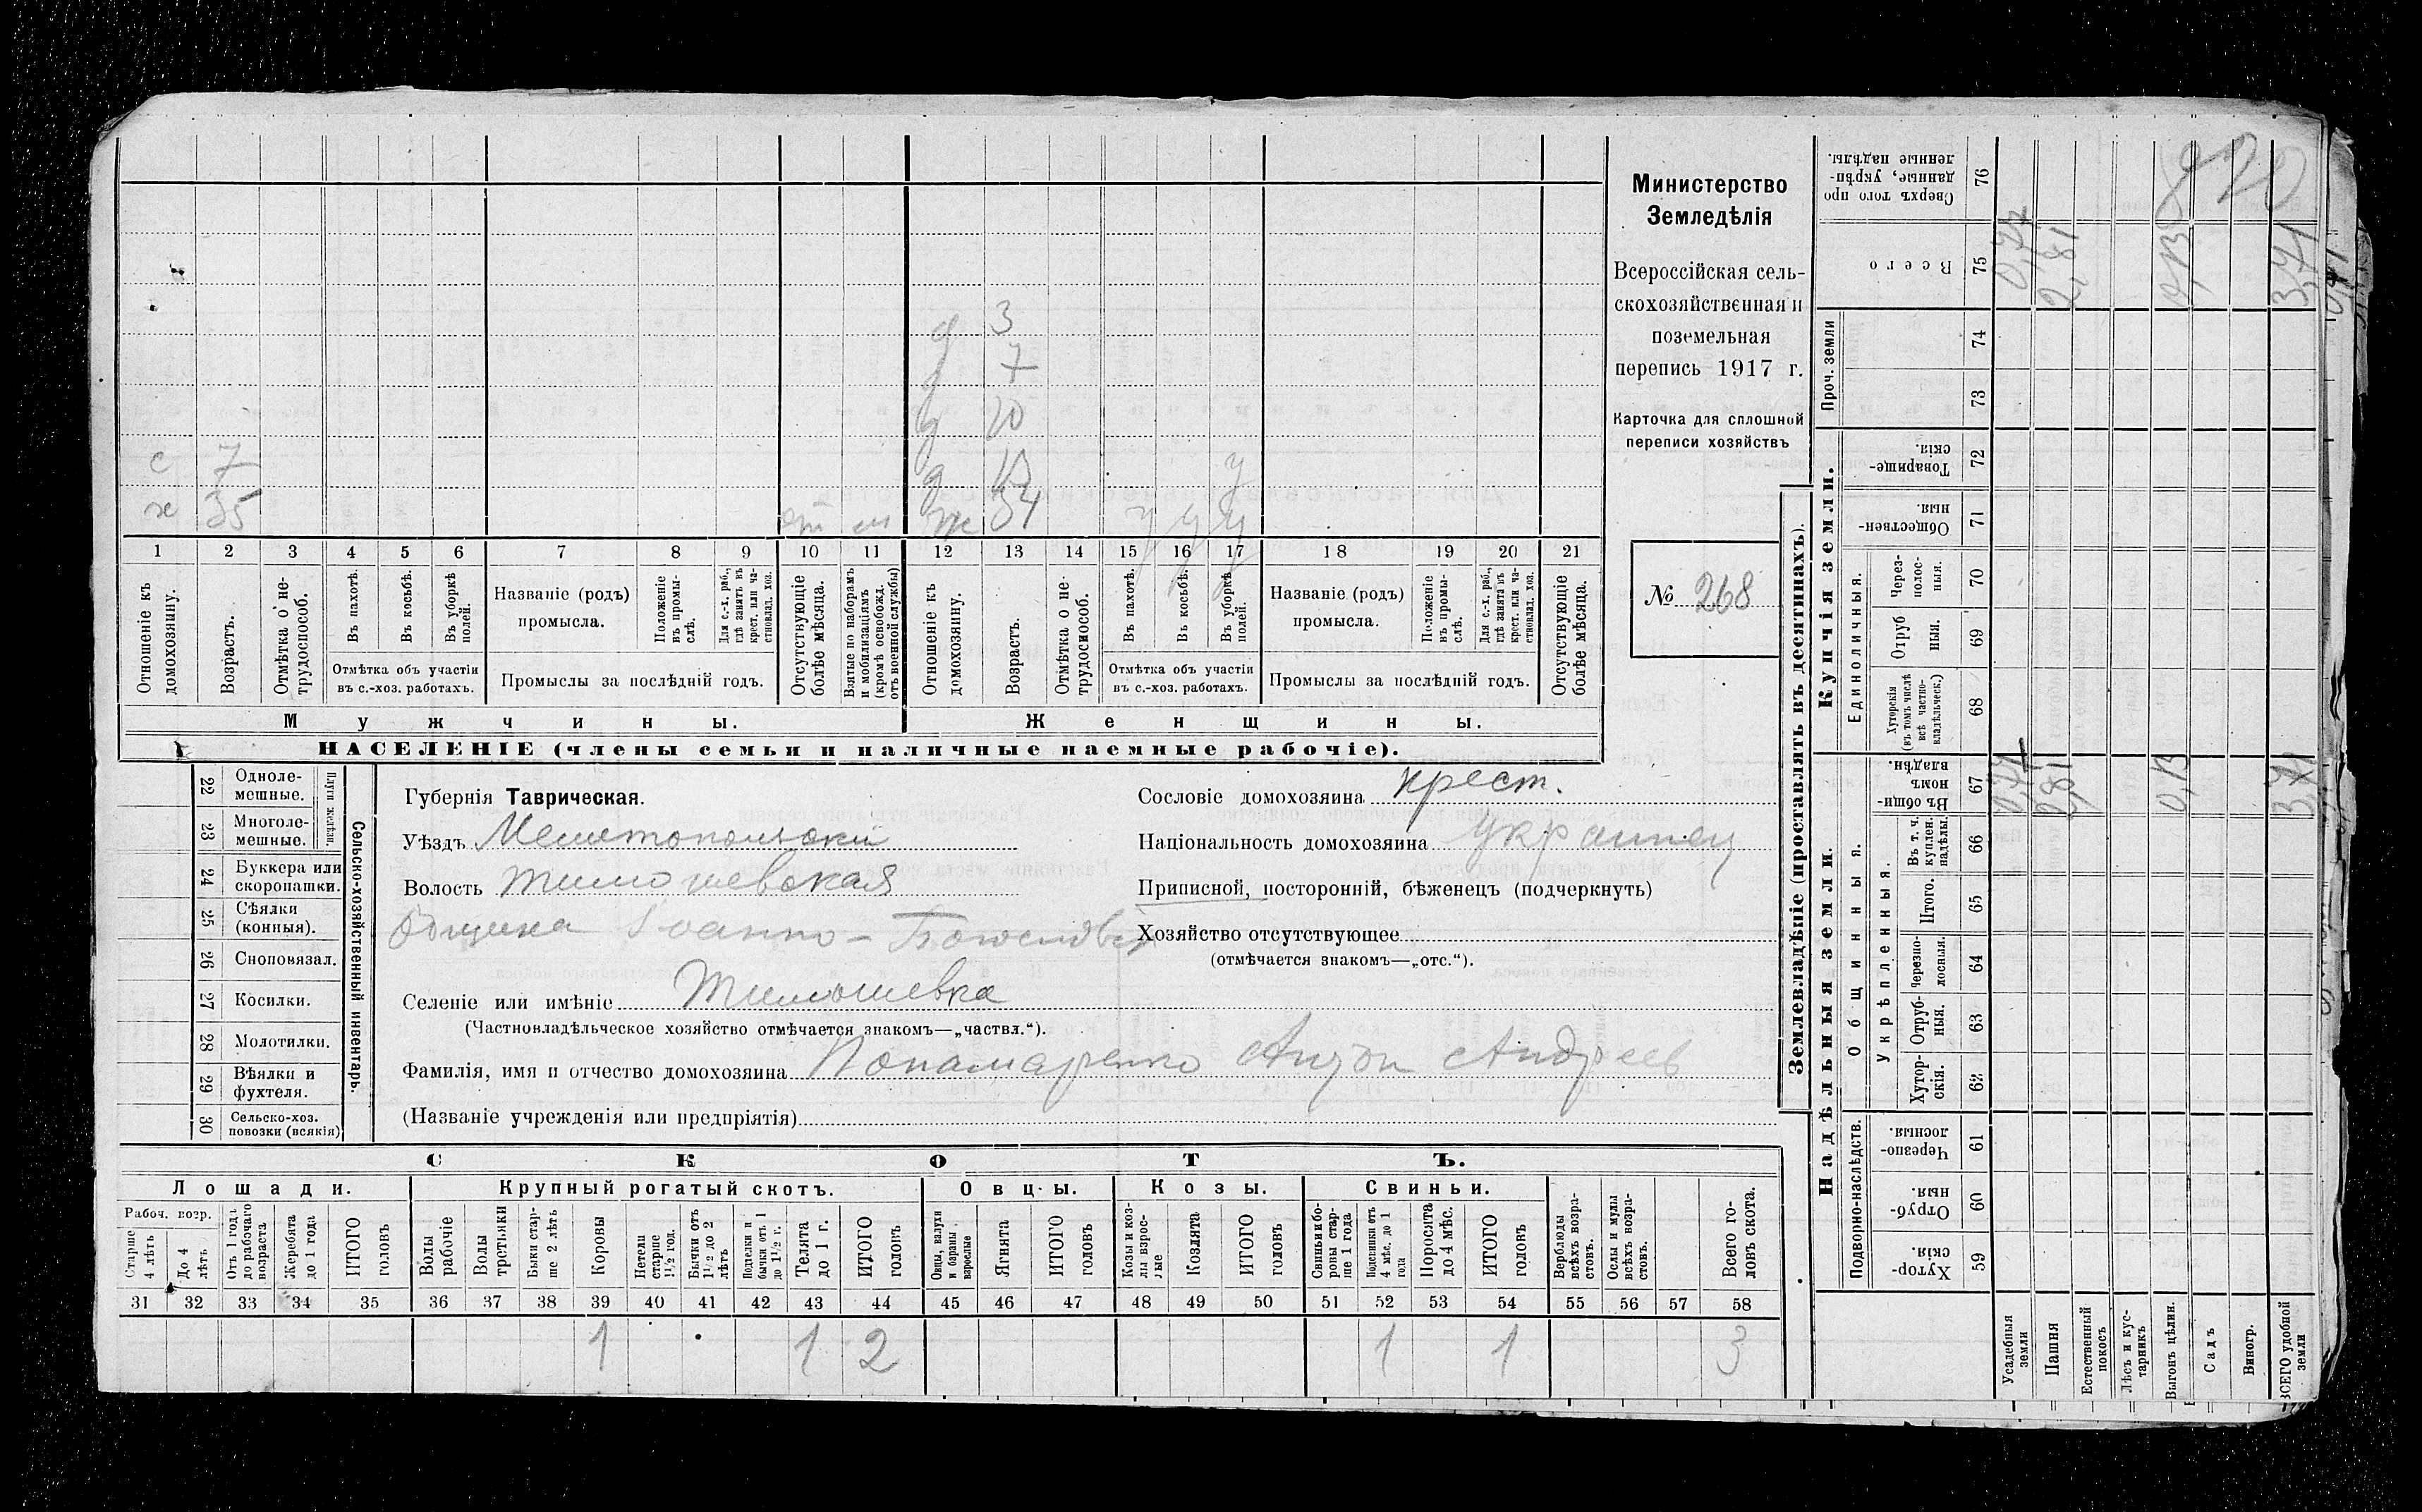 Министерство
Земледѣлія
Всероссійская сель-
скохозяйственная и
поземельная
перепись 1917 г.
Карточка для сплошной
переписи хозяйствъ
№ 268
д 3
д 7
д 10
с 7 д у
х 35 ж 34 у у у
1 2 3 4 5 6 7 8 9 10 11 12 13 14 15 16 17 18 19 20 21
Отношеніе къ домохозяину.
Возрастъ.
Отмѣтка о не-трудоспособ.
Въ пахотѣ.
Въ косьбѣ.
Въ уборкѣ полей.
Отмѣтка объ участіи
въ с.-хоз. работахъ.
Названіе (родъ)
промысла.
Положеніе въ промы-слѣ.
Для с.-х. раб., гдѣ занятъ въ крест. или ча-стновлад. хоз.
Промыслы за послѣдній годъ.
Отсутствующіе болѣе мѣсяца.
Взятые по наборамъ и мобилизаціямъ (кромѣ освобожд. отъ военной службы)
Отношеніе къ домохозяину.
Возрастъ.
Отмѣтка о не-трудоспособ.
Въ пахотѣ.
Въ косьбѣ.
Въ уборкѣ полей.
Отмѣтка объ участіи
въ с.-хоз. работахъ.
Названіе (родъ)
промысла.
Положеніе въ промы-слѣ.
Для с.-х. раб., гдѣ занята въ крест. или ча-стновлад. хоз.
Промыслы за послѣдній годъ.
Отсутствующіе болѣе мѣсяца.
Мужчины. Женщины.
НАСЕЛЕНІЕ (члены семьи и наличные наемные рабочіе).
22 Одноле-мешные.
23 Многоле-мешные.
24 Буккера или скоропашки.
25 Сѣялки (конныя).
26 Сноповязал.
27 Косилки.
28 Молотилки.
29 Вѣялки и фухтеля.
30 Сельско-хоз. повозки (всякія)
Сельско-хозяйственный инвентарь.
Губернія Таврическая.
Уѣздъ Мелитопольскій
Волость Тимошевская
Община Іоанно-Богословск
Селеніе или имѣніе Тимошевка
(Частновладѣльческое хозяйство отмѣчается знакомъ—„частвл.“).
Фамилія, имя и отчество домохозяина Понамаренко Андреев
(Названіе учрежденія или предпріятія)
Сословіе домохозяина крест.
Національность домохозяина украинец
Приписной, посторонній, бѣженецъ (подчеркнуть)
Хозяйство отсутствующее
(отмѣчается знакомъ—„отс.“).
СКОТЪ.
Лошади. Крупный рогатый скотъ. Овцы. Козы. Свиньи.
Рабоч. возр.
Старше 4 лѣтъ
До 4 лѣтъ
Отъ 1 года до рабочаго возраста
Жеребята до 1 года
ИТОГО головъ
Волы рабочіе
Волы третьяки
Быки стар-ше 2 лѣтъ
Коровы
Нетели старше 1½ год.
Бычки отъ 1½ до 2 лѣтъ
Подтелки и бычки отъ 1 до 1½ г.
Телята до 1 г.
ИТОГО головъ
Овцы, валухи и бараны взрослые
Ягнята
ИТОГО головъ
Козы и коз-лы взрос-лые
Козлята
ИТОГО головъ
Свиньи и бо-ровы стар-ше 1 года
Подсвинки отъ 4 мѣс. до 1 года
Поросята до 4 мѣс.
ИТОГО головъ
Верблюды всѣхъ возра-стовъ.
Ослы и мулы всѣхъ возра-стовъ.
Всего го-ловъ скота.
31 32 33 34 35 36 37 38 39 40 41 42 43 44 45 46 47 48 49 50 51 52 53 54 55 56 57 58
1 1 2 1 1 3
Землевладѣніе (проставлять въ десятинахъ).
Надѣльныя земли.
Купчія земли.
Подворно-наслѣдств.
Общинныя.
Укрѣпленныя.
Единоличныя.
Проч. земли
Хутор-скія. 59
Отруб-ныя. 60
Черезпо-лосныя. 61
Хутор-скія. 62
Отруб-ныя. 63
Черезпо-лосныя. 64
Итого. 65
Въ т. ч. куплен. надѣлы. 66
Въ общин-номъ владѣн. 67
Хуторскія (въ томъ числѣ всѣ частно-владѣльческ.) 68
Отруб ныя. 69
Через-полос-ныя. 70
Обществен-ныя. 71
Товарище-скія. 72
73
74
Всего 75
Сверхъ того про даиные, укрѣп-ленные надѣлы. 76
Усадебныя земли
Пашня 2,81 2,81
Естественный покосъ
Лѣсъ и кус-тарникъ
Выгонъ цѣлин. 0,13
Садъ
Виногр.
ВСЕГО удобной земли 3,71